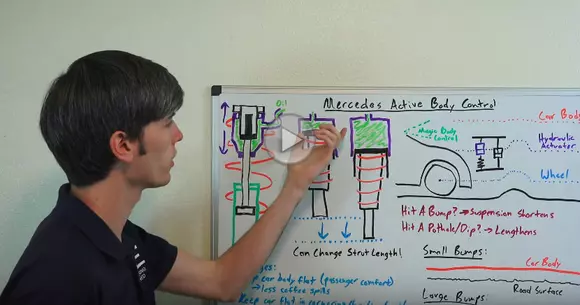 Mercedes Active Body Control
Oil
Car Body
Magic Body
Control
Hydraulic
Actuator
Wheel
Hit A Bump? → Suspension Shortens
Hit A Pothole/Dip? → Lengthens
Can Change Strut Length!
Small Bumps:
car body flat (passenger comfort)
Car Body
→ less coffee spills
Road Surface
Keep car flat in
Large Bumps